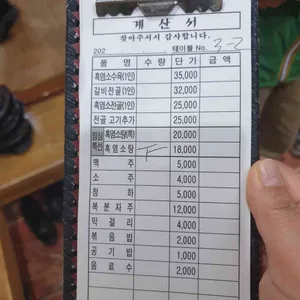 계 산 서
찾아주셔서 감사합니다.
202 . . . 테이블 No. 3-2
품 명 수 량 단 가 금 액
흑염소수육(1인) 35,000
갈비전골(1인) 32,000
흑염소전골(1인) 25,000
전골 고기추가 25,000
점심 특선 흑염소탕(특) 20,000
흑 염 소 탕 下 18,000
맥 주 5,000
소 주 4,000
청 하 5,000
복 분 자 주 12,000
막 걸 리 4,000
볶 음 밥 2,000
공 기 밥 1,000
음 료 수 2,000